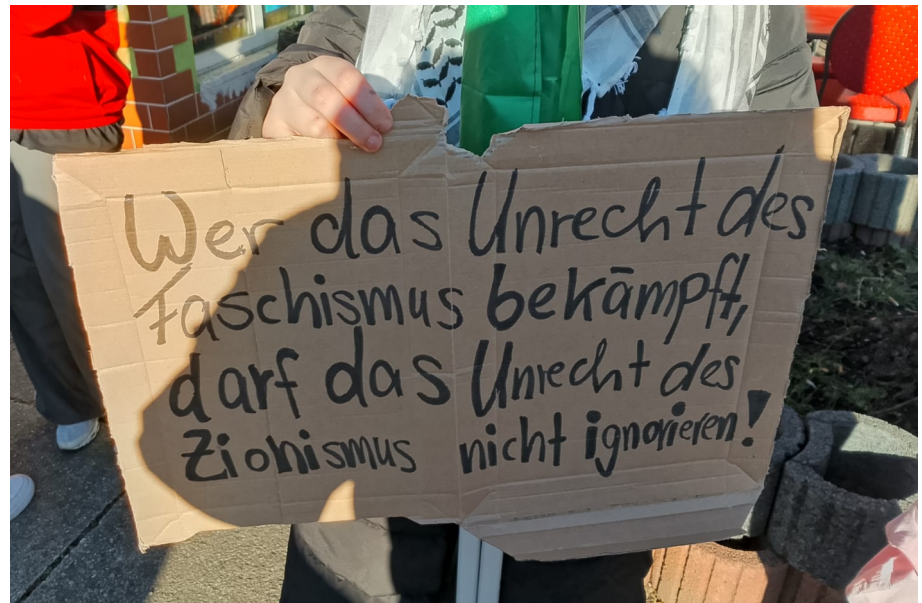 Wer das Unrecht des
Faschismus bekämpft,
darf das Unrecht des
Zionismus nicht ignorieren!